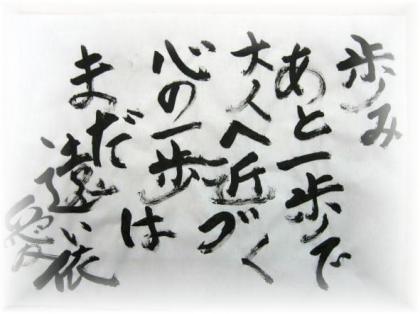 歩み
あと一歩で
大人へ近づく
心の一歩は
まだ遠い
愛依